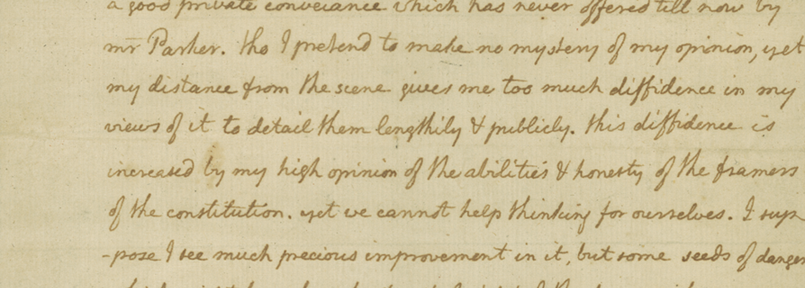 a good private conveiance which has never offered till now by
mr Parker. tho I pretend to make no mystery of my opinion, yet
my distance from the scene gives me too much diffidence in my
views of it to detail them lengthily & publicly. this diffidence is
increased by my high opinion of the abilities & honesty of the framers
of the constitution. yet we cannot help thinking for ourselves. I sup
-pose I see much precious improvement in it, but some seeds of danger